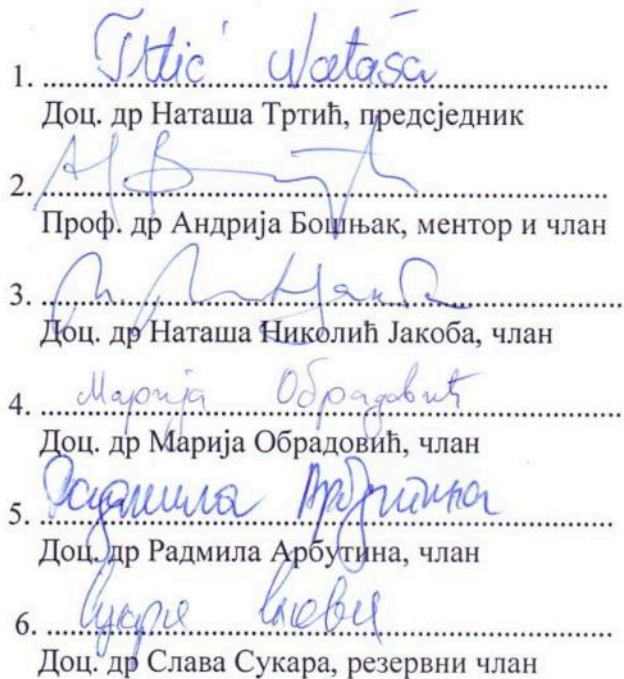 Trtić Nataša
1. ........................................................................
Доц. др Наташа Тртић, предсједник
2. ........................................................................
Проф. др Андрија Бошњак, ментор и члан
3. ........................................................................
Доц. др Наташа Николић Јакоба, члан
Марија Обрадовић
4. ........................................................................
Доц. др Марија Обрадовић, члан
Радмила Арбутина
5. ........................................................................
Доц. др Радмила Арбутина, члан
6. ........................................................................
Доц. др Слава Сукара, резервни члан